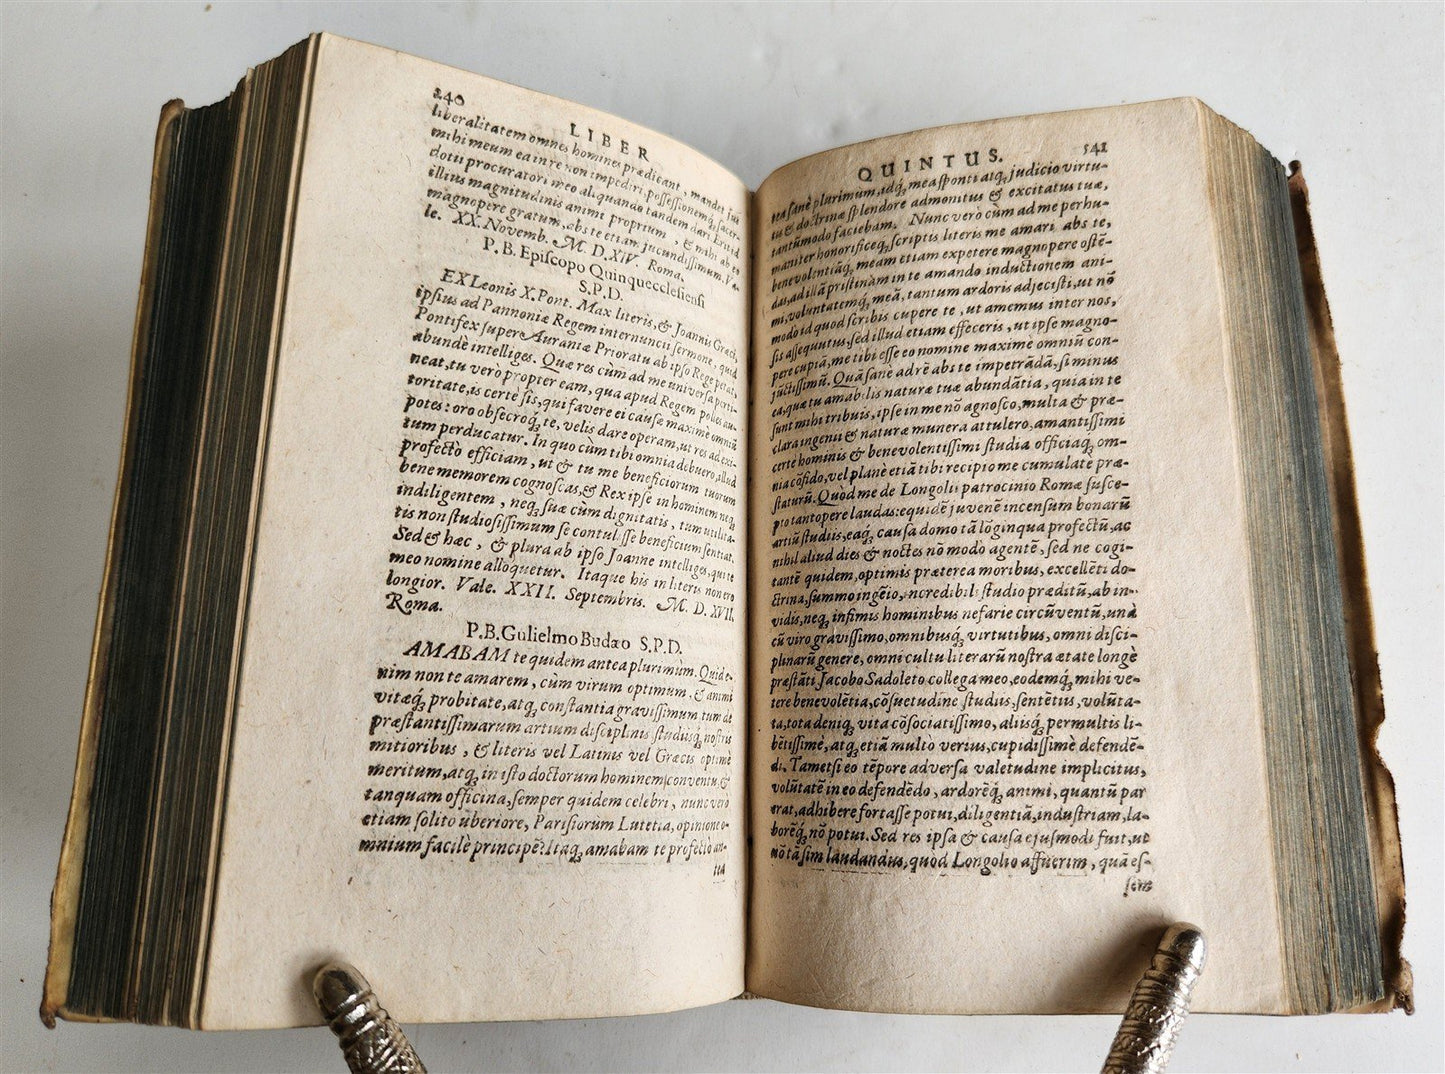 240
LIBER
liberalitatem omnes homines prædicant, mandet suis
mihi meum ea in re non impediri, possessionemq́; sacer-
dotii procuratori meo aliquando tandem dari. Erit id
illius magnitudinis animi proprium, & mihi ab eo
magnopere gratum, abs te etiam jucundissimum. Va-
le. XX. Novemb. M. D. XIV. Roma.
P. B. Episcopo Quinquecclesiensi
S. P. D.
EX Leonis X. Pont. Max literis, & Joannis Græci,
ipsius ad Pannoniæ Regem internuncii sermone, quid
Pontifex super Auraniæ Prioratu ab ipso Rege petat,
abundè intelliges. Quæ res cùm ad me universa perti-
neat, tu verò propter eam, qua apud Regem poles au-
toritate, is certè sis, qui favere ei causæ maximè omniū
potes: oro obsecroq́; te, velis dare operam, ut res ad exi-
tum perducatur. In quo cùm tibi omnia debuero, illud
profectò efficiam, ut & tu me beneficiorum tuorum
bene memorem cognoscas, & Rex ipse in hominem neq;
indiligentem, neq; suæ cùm dignitatis, tum utilita-
tis non studiosissimum se contulisse beneficium sentiat.
Sed & hæc, & plura ab ipso Joanne intelliges, qui te
meo nomine alloquetur. Itaque his in literis non ero
longior. Vale. XXII. Septembris. M. D. XVII.
Roma.
P. B. Gulielmo Budæo S. P. D.
AMABAM te quidem antea plurimùm. Quid e-
nim non te amarem, cùm virum optimum, & animi
vitæq́; probitate, atq; constantia gravissimum tum de
præstantissimarum artium disciplinis studiisq; nostris
mitioribus, & literis vel Latinis vel Græcis optimè
meritum, atq; in isto doctorum hominem conventu, &
tanquam officina, semper quidem celebri, nunc verò
etiam solito uberiore, Parisiorum Lutetia, opinione o-
mnium facilè principē? Itaq; amabam te profectò an-
tea
QUINTUS.
541
tea sanè plurimum, idq́; mea sponti atq; judicio virtu-
tu & doctrinæ splendore admonitus & excitatus tuæ,
tantùmodo faciebam. Nunc verò cùm ad me perhu-
maniter honorificeq; scriptis literis me amari abs te,
benevolentiāq; meam etiam expetere magnopere ostē-
das, ad illā pristinàm in te amando inductionem ani-
mi, voluntatemq́; meā, tantum ardoris adjecisti, ut nō
modo id quod scribis cupere te, ut amemus inter nos,
sis assequutus, sed illud etiam effeceris, ut ipse magno-
pere cupiā, me tibi esse eo nomine maximè omniū con-
jūctissimū. Quā sanè ad rē abs te impetrādā, si minus
ea, quæ tu amabilis naturæ tuæ abundātia, quia in te
sunt mihi tribuis, ipse in me nō agnosco, multa & præ-
clara ingenii & naturæ munera attulero, amantissimi
certè hominis & benevolentissimi studia officiaq́; om-
nia cōfido, vel planè etiā tibi recipio me cumulatè præ-
staturū. Quòd me de Longolii patrocinio Romæ susce-
pto tantopere laudas: equidē juvenē incensum bonarū
artiū studiis, eaq́; causa domo tā lōginqua profectū, ac
nihil aliud dies & noctes nō modo agentē, sed ne cogi-
tantē quidem, optimis præterea moribus, excellēti do-
ctrina, summo ingēio, incredibili studio præditū, ab in-
vidis, neq; infimis hominibus nefariè circūventū, unà
cū viro gravissimo, omnibusq́; virtutibus, omni disci-
plinarū genere, omni cultu literarū nostra ætate longè
præstāti Jacobo Sadoleto collega meo, eodemq́; mihi ve-
tere benevolētia, cōsuetudine studiis, sentētiis, volūta-
ta, tota deniq; vita cōsociatissimo, aliisq́; permultis li-
bētissimè, atq; etiā multò verius, cupidissimè defendē-
di. Tametsi eo tēpore adversa valetudine implicitus,
volūtatē in eo defendēdo, ardorēq́; animi, quantū par
erat, adhibere fortasse potui, diligentiā, industriam, la-
borēq́; nō potui. Sed res ipsa & causa ejusmodi fuit, ut
nō tā sim laudandus, quod Longolio affuerim, quā es-
sem